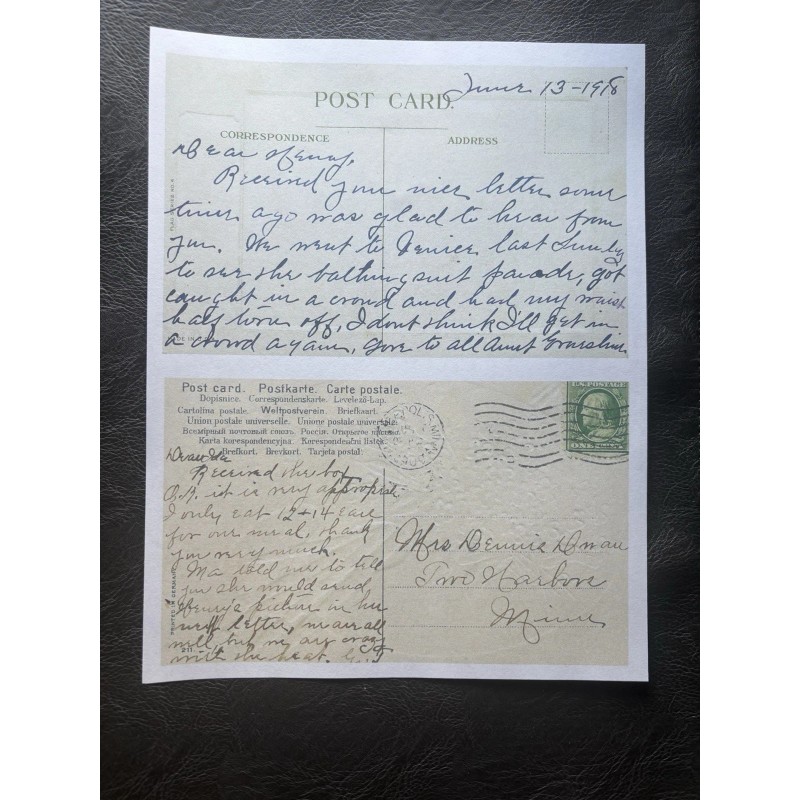 June 13-1918
POST CARD.
CORRESPONDENCE
ADDRESS
Dear Henry,
Received your nice letter some
time ago was glad to hear from
you. We went to Venice last Sunday
to see the bathing suit parade, got
caught in a crowd and had my waist
half torn off, I dont think I'll get in
a crowd again, love to all Aunt
Post card. Postkarte. Carte postale.
Dopisnice. Correspondenzkarte. Levelező-Lap.
Cartolina postale. Weltpostverein. Briefkaart.
Union postale universelle. Unione postale universale
Всемірный почтовый союзъ. Россія. Открытое письмо.
Karta korespondencyjna. Korespondenční lístek.
Brefkort. Brevkort. Tarjeta postal.
U.S. POSTAGE
ONE
Received the box
O.K. it is very
I only eat 12 + 14 ears
for one meal, thank
you very much.
Ma told me to tell
you she would send
Henry's picture in her
next letter, we are all
well, but we are crazy
with the heat.
Mrs Dennis Dwan
Two Harbors
Minn
PRINTED IN GERMANY
211